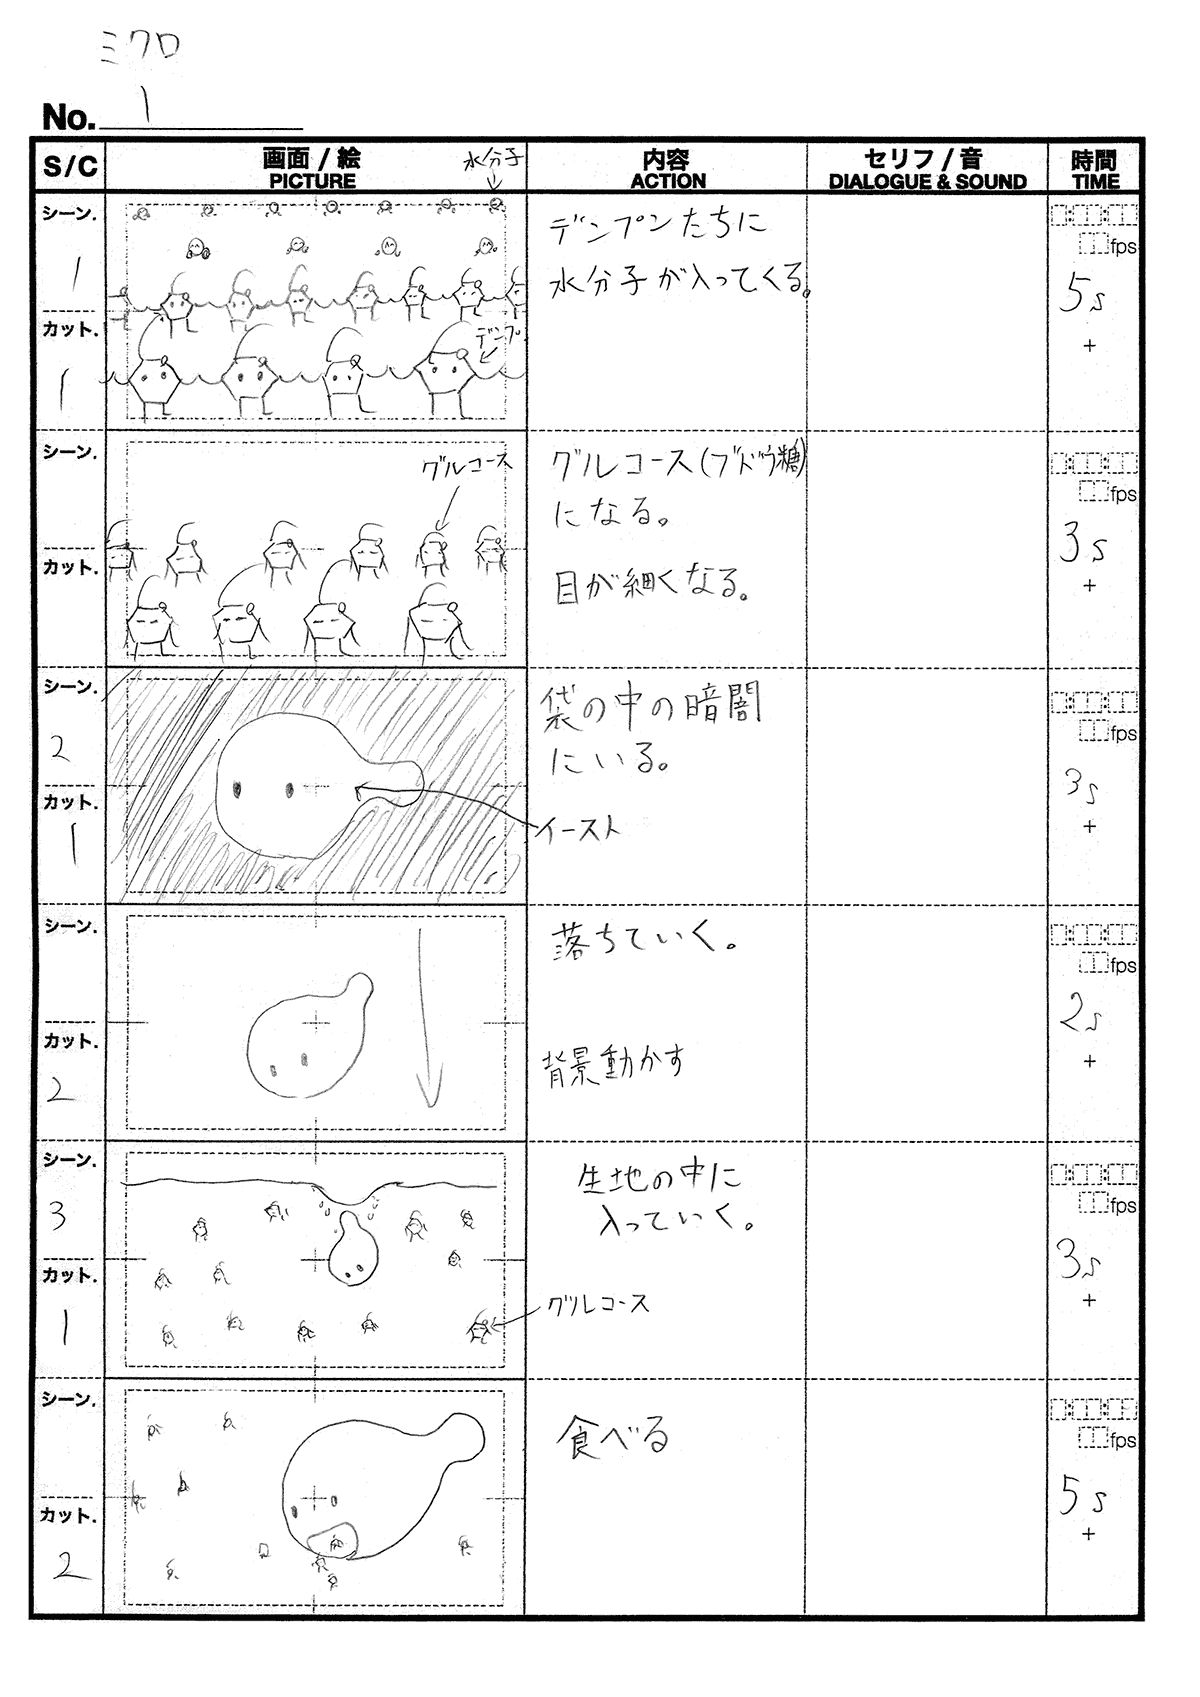 ミクロ
No. 1
S/C
画面 / 絵
PICTURE
水分子
内容
ACTION
セリフ / 音
DIALOGUE & SOUND
時間
TIME
シーン.
1
カット.
1
デンプ
デンプンたちに
水分子が入ってくる。
fps
5s
+
シーン.
カット.
グルコース
グルコース(ブドウ糖)
になる。
目が細くなる。
fps
3s
+
シーン.
2
カット.
1
袋の中の暗闇
にいる。
イースト
fps
3s
+
シーン.
カット.
2
落ちていく。
背景動かす
fps
2s
+
シーン.
3
カット.
1
生地の中に
入っていく。
グルコース
fps
3s
+
シーン.
カット.
2
食べる
fps
5s
+